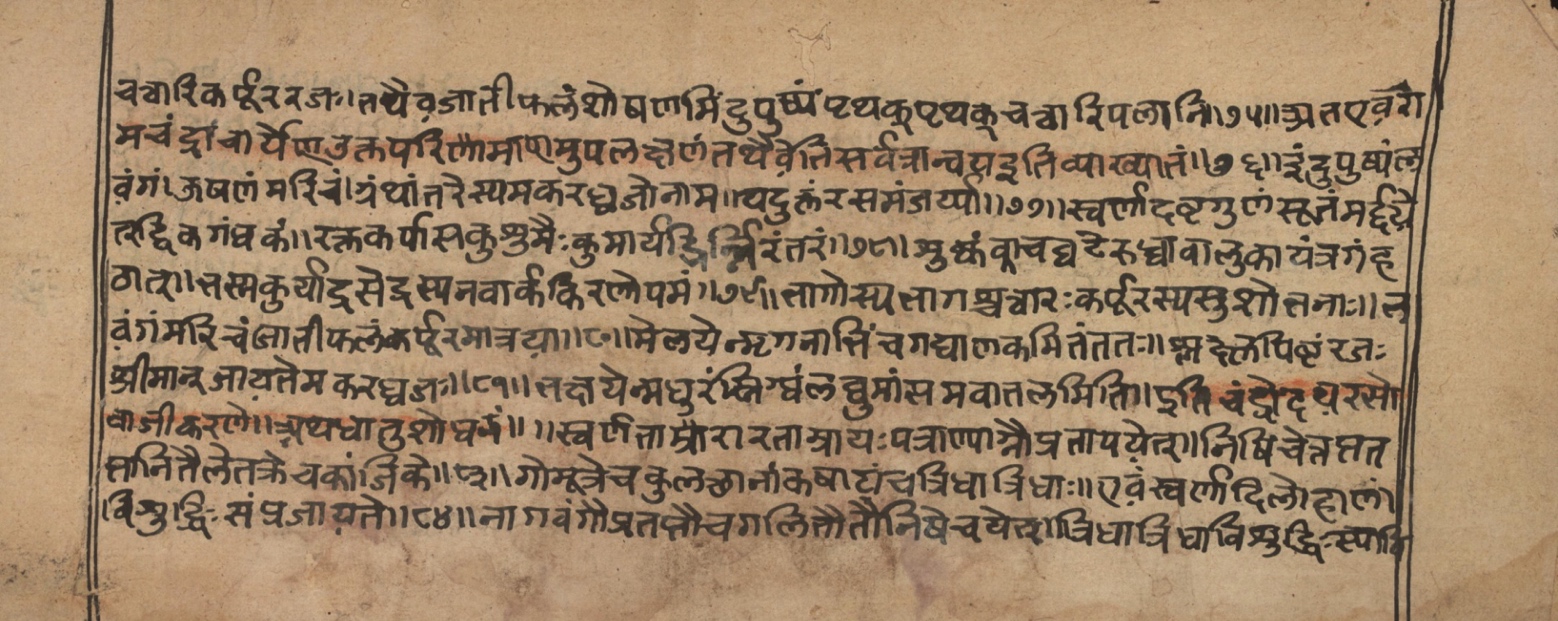 चत्वारिकर्प्पूररजः।।तथैवजातीफलंशोषणमिंदुपुष्पंपृथक्पृथक्चत्वारिपलानि।।७५।।अतएवरा
मचंद्राचार्येणउक्तपरिणामाणमुपलक्षणंतथैवेतिसर्वत्रान्वयइतिव्याख्यातं।।७६।।इंदुपुष्पंल
वंगं।ऊषणंमरिचं।ग्रंथांतरेस्यमकरध्वजोनाम।।यदुक्तंरसमंजर्य्यां।।७७।।स्वर्णादष्टगुणंसूतंमर्द्दये
त्तद्विकगंधकं।।रक्तकर्पासकुशुमैःकुमार्यद्भिर्न्निरंतरं।।७८।।शुष्कंकाचघटेरुध्वावालुकायंत्रगंह
ठात्।।भस्मकुर्याद्रसेंद्रस्यनवार्ककिरणोपमं।।७९।।भागोस्यभागश्चत्वारःकर्प्पूरस्यसुशोभनाः।।ल
वंगंमरिचंजातीफलंकर्प्पूरमात्रया।।८०।।मेलयेन्मृगनाभिंचगद्याणकमितंततः।।श्लक्ष्णपिष्टंरजः
श्रीमान्जायतेमकरध्वजः।।८१।।भक्षयेन्मधुरंस्निग्धंलघुमांसमवातलमिति।।इतिचंद्रोदयरसो
वाजीकरणे।।अथधातुशोधनं।।।।स्वर्णताम्रारारताम्रायःपत्राण्याग्नौप्रतापयेत्।।निषिचेत्तप्तत
प्तानितैलेतक्रेचकांजिके।।८३।।गोमूत्रेचकुलछानांकषाटांचत्रिधात्रिधाः।।एवंस्वर्णादिलोहाणां
विशुद्धिःसंप्रजायते।।८४।।नागवंगौप्रतप्तौचगलितौतौनिषेचयेत्।त्रिधात्रिधाविशुद्धिःस्यावि